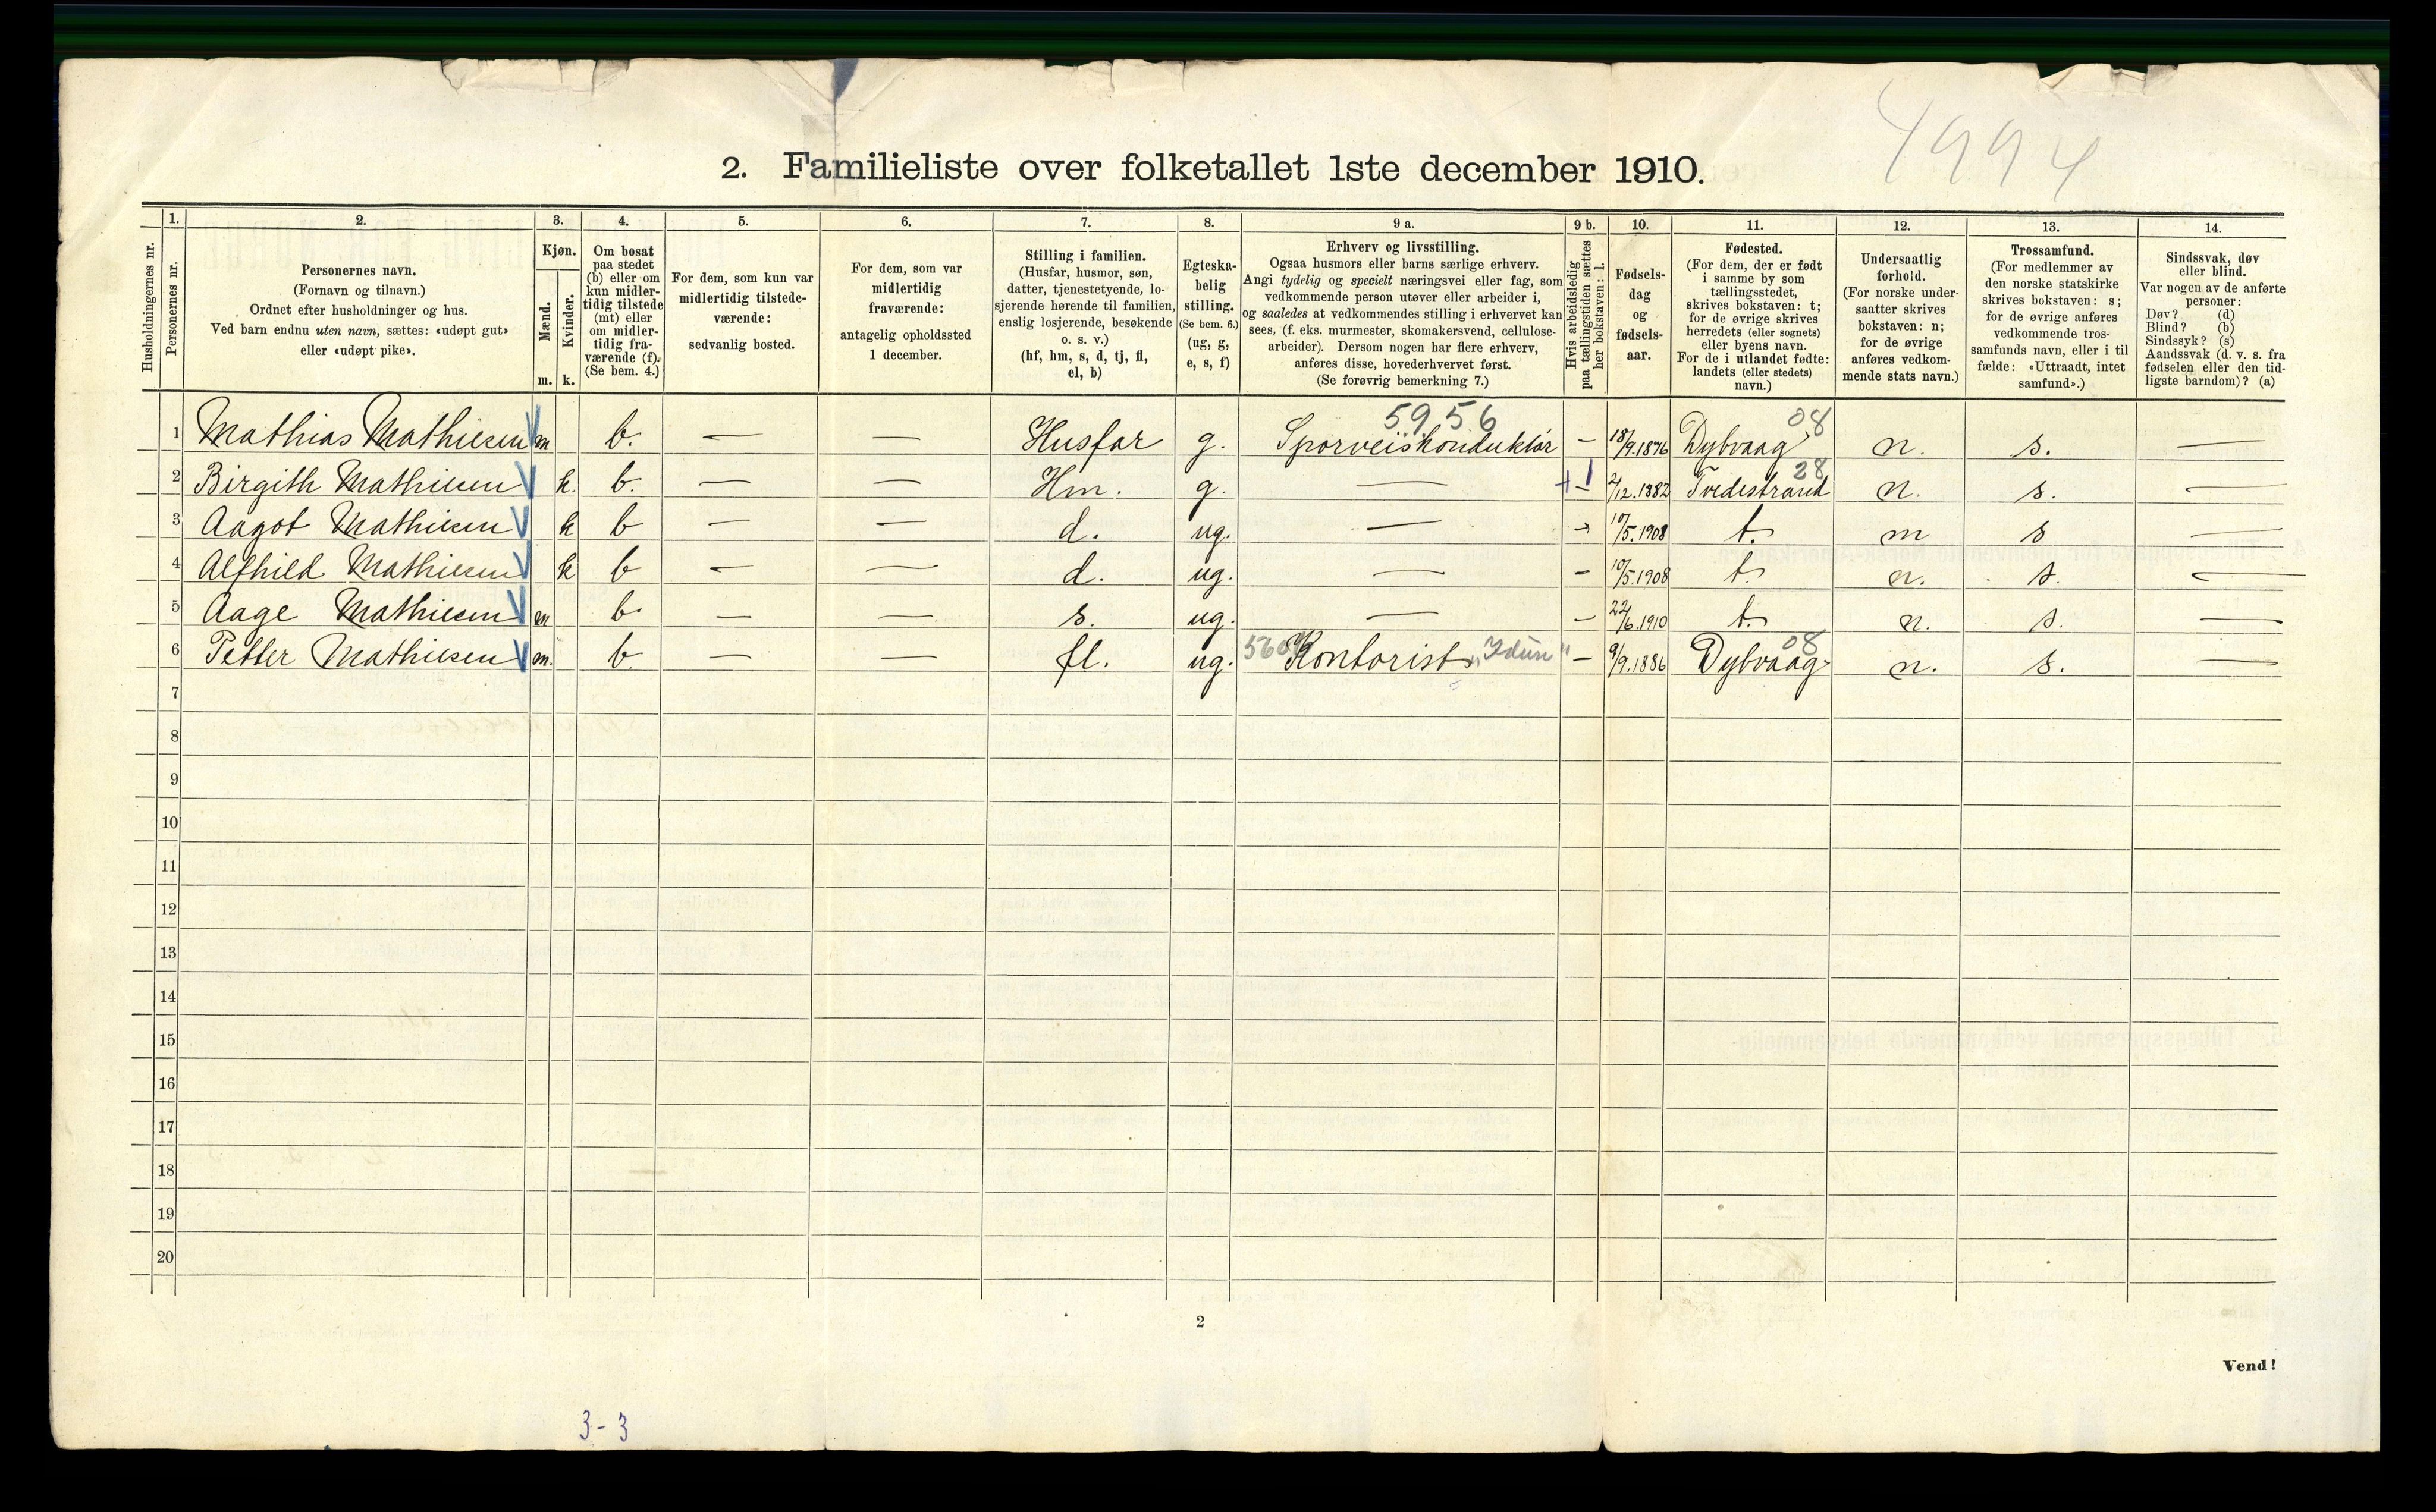 4994
2. Familieliste over folketallet 1ste december 1910.
Husholdningernes nr.
1.
Personernes nr.
2.
Personernes navn.
(Fornavn og tilnavn.)
Ordnet efter husholdninger og hus.
Ved barn endnu uten navn, sættes: «udøpt gut»
eller «udøpt pike».
3.
Kjøn.
Mænd.
Kvinder.
m. k.
4.
Om bosat
paa stedet
(b) eller om
kun midler-
tidig tilstede
(mt) eller
om midler-
tidig fra-
værende (f).
(Se bem. 4.)
5.
For dem, som kun var
midlertidig tilstede-
værende:
sedvanlig bosted.
6.
For dem, som var
midlertidig
fraværende:
antagelig opholdssted
1 december.
7.
Stilling i familien.
(Husfar, husmor, søn,
datter, tjenestetyende, lo-
sjerende hørende til familien,
enslig losjerende, besøkende
o. s. v.)
(hf, hm, s, d, tj, fl,
el, b)
8.
Egteska-
belig
stilling.
(Se bem. 6.)
(ug, g,
e, s, f)
9 a.
Erhverv og livsstilling.
Ogsaa husmors eller barns særlige erhverv.
Angi tydelig og specielt næringsvei eller fag, som
vedkommende person utøver eller arbeider i,
og saaledes at vedkommendes stilling i erhvervet kan
sees, (f. eks. murmester, skomakersvend, cellulose-
arbeider). Dersom nogen har flere erhverv,
anføres disse, hovederhvervet først.
(Se forøvrig bemerkning 7.)
9 b.
Hvis arbeidsledig
paa tællingstiden sættes
her bokstaven: l.
10.
Fødsels-
dag
og
fødsels-
aar.
11.
Fødested.
(For dem, der er født
i samme by som
tællingsstedet,
skrives bokstaven: t;
for de øvrige skrives
herredets (eller sognets)
eller byens navn.
For de i utlandet fødte:
landets (eller stedets)
navn.)
12.
Undersaatlig
forhold.
(For norske under-
saatter skrives
bokstaven: n;
for de øvrige
anføres vedkom-
mende stats navn.)
13.
Trossamfund.
(For medlemmer av
den norske statskirke
skrives bokstaven: s;
for de øvrige anføres
vedkommende tros-
samfunds navn, eller i til
fælde: «Uttraadt, intet
samfund».)
14.
Sindssvak, døv
eller blind.
Var nogen av de anførte
personer:
Døv? (d)
Blind? (b)
Sindssyk? (s)
Aandssvak (d. v. s. fra
fødselen eller den tid-
ligste barndom)? (a)
5956 08
1 Mathias Mathiesen m b. — — Husfar g. Sporveiskonduktør — 18/9.1876 Dybvaag n. s. —
28
2 Birgith Mathiesen k. b. — — Hm. g. — + 1 — 2/12.1882 Tvedestrand n. s. —
3 Aagot Mathiesen k b — — d. ug. — — 10/5.1908 t. n s —
4 Alfhild Mathiesen k b — — d. ug. — — 10/5.1908 t. n. s. —
5 Aage Mathiesen m b. — — s. ug. — — 22/6.1910 t. n. s. —
08
6 Petter Mathiesen m. b. — — fl. ug. Kontorist "Idun" — 9/9.1886 Dybvaag n. s. —
7
8
9
10
11
12
13
14
15
16
17
18
19
20
2
Vend!
3-3